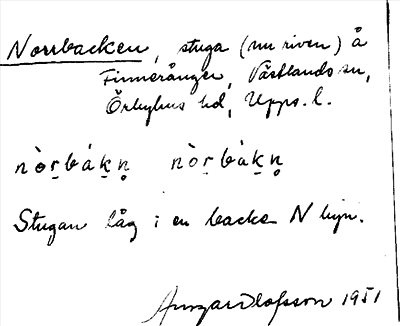 Norrbacken, stuga (nu riven) å
Finnerånger, Västlands sn,
Örbyhus hd, Upps. l.
nòṟbàḵn̥ nòṟbàḵn̥
Stugan låg i en backe N byn.
Olofsson 1951